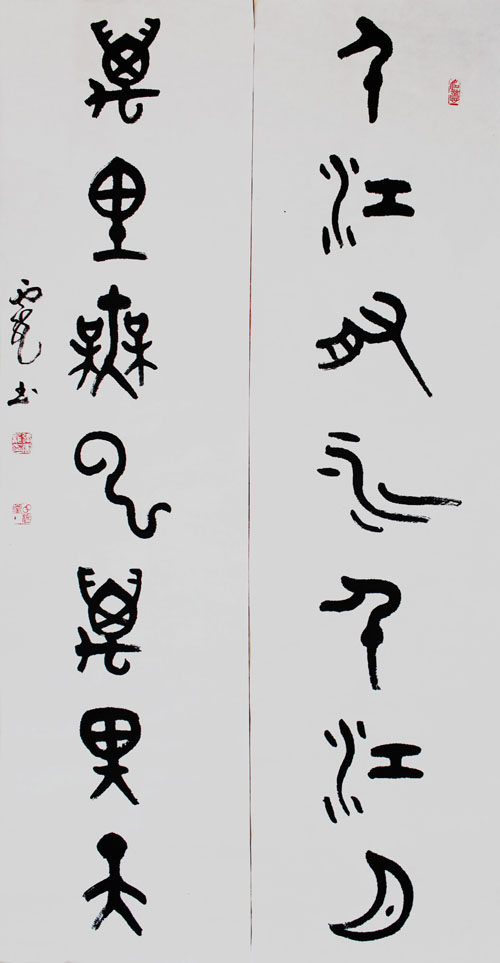 千江有水千江月
萬里無雲萬里天
书